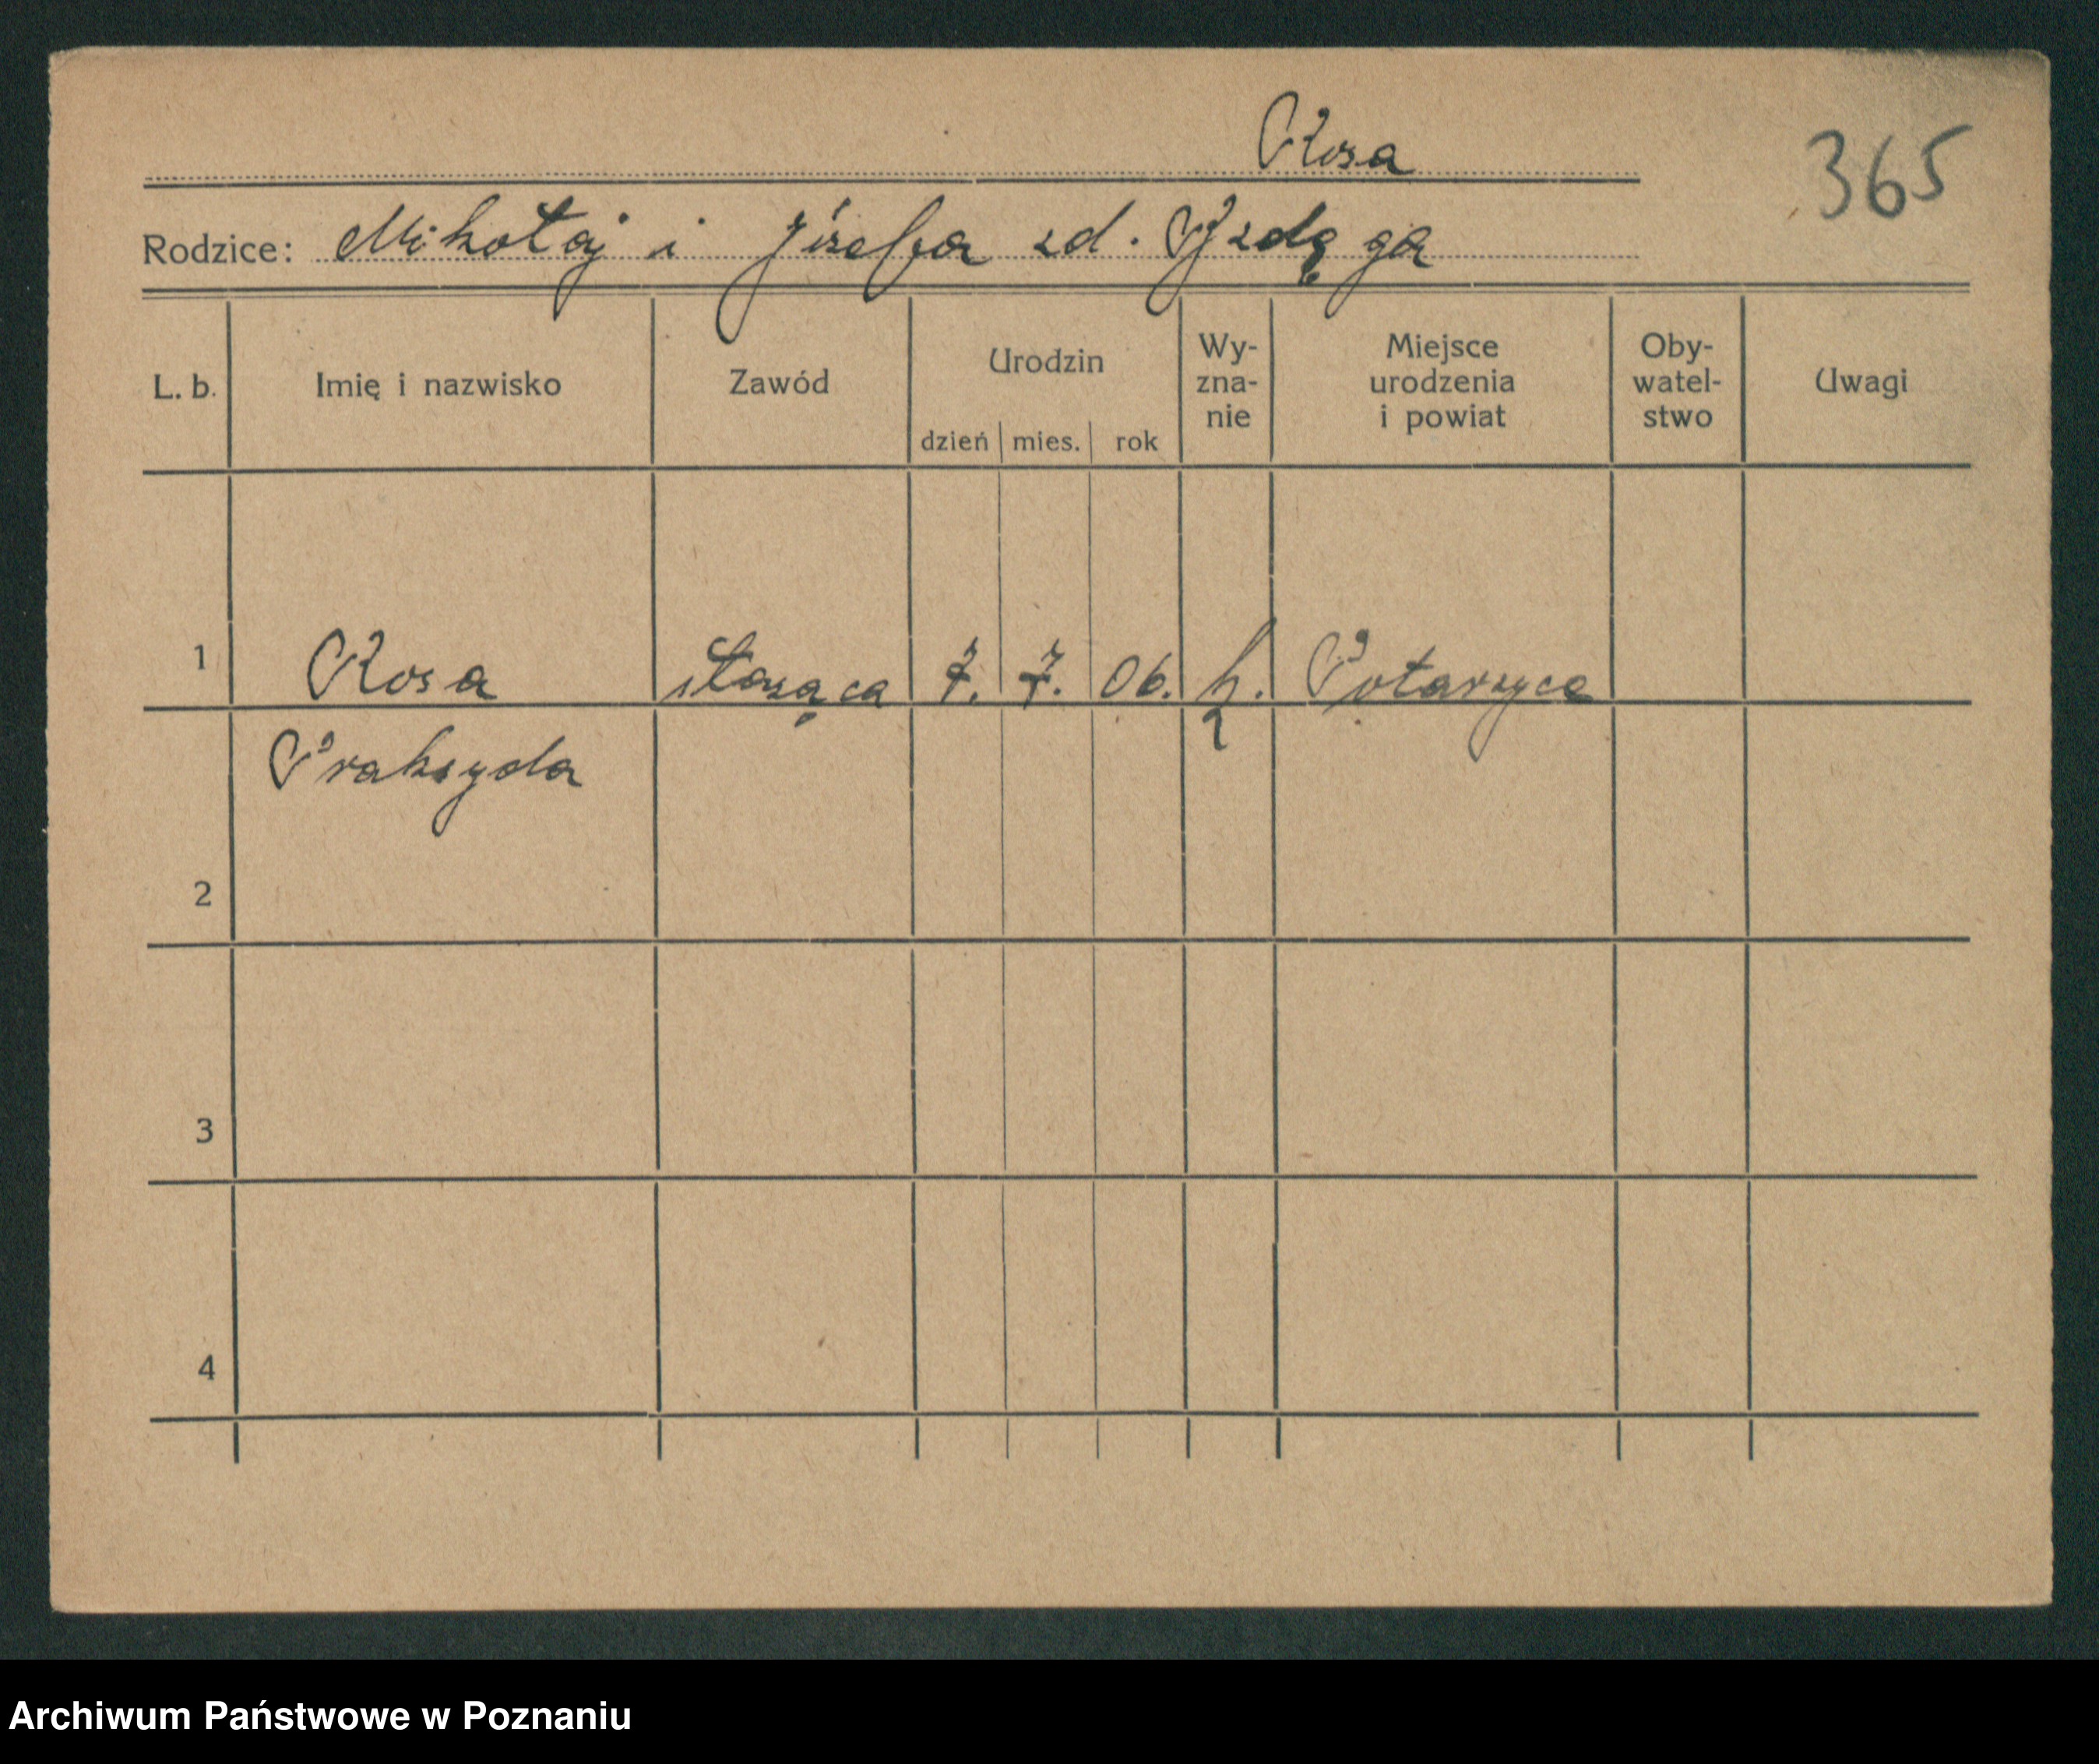 Kosa
365
Rodzice: Mikołaj i Józefa zd.
L. b. Imię i nazwisko Zawód Urodzin dzień mies. rok Wy-zna-nie Miejsce urodzenia i powiat Oby-watel-stwo Uwagi
1 Kosa służąca 7. 7. 06. k. Potarzyca
Praksyda
2
3
4
Archiwum Państwowe w Poznaniu